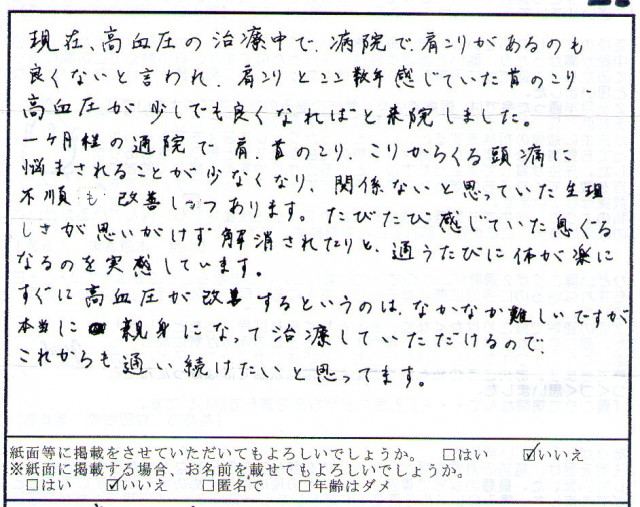 現在、高血圧の治療中で、病院で、肩こりがあるのも
良くないと言われ、肩こりとここ数年感じていた首のこり
高血圧が少しでも良くなればと来院しました。
一ヶ月程の通院で肩、首のこり、こりからくる頭痛に
悩まされることが少なくなり、関係ないと思っていた生理
不順も改善しつつあります。たびたび感じていた息ぐる
しさが思いがけず解消されたりと、通うたびに体が楽に
なるのを実感しています。
すぐに高血圧が改善するというのは、なかなか難しいですが
本当に親身になって治療していただけるので、
これからも通い続けたいと思ってます。
紙面等に掲載をさせていただいてもよろしいでしょうか。 □はい ☑いいえ
※紙面に掲載する場合、お名前を載せてもよろしいでしょうか。
□はい ☑いいえ □匿名で □年齢はダメ